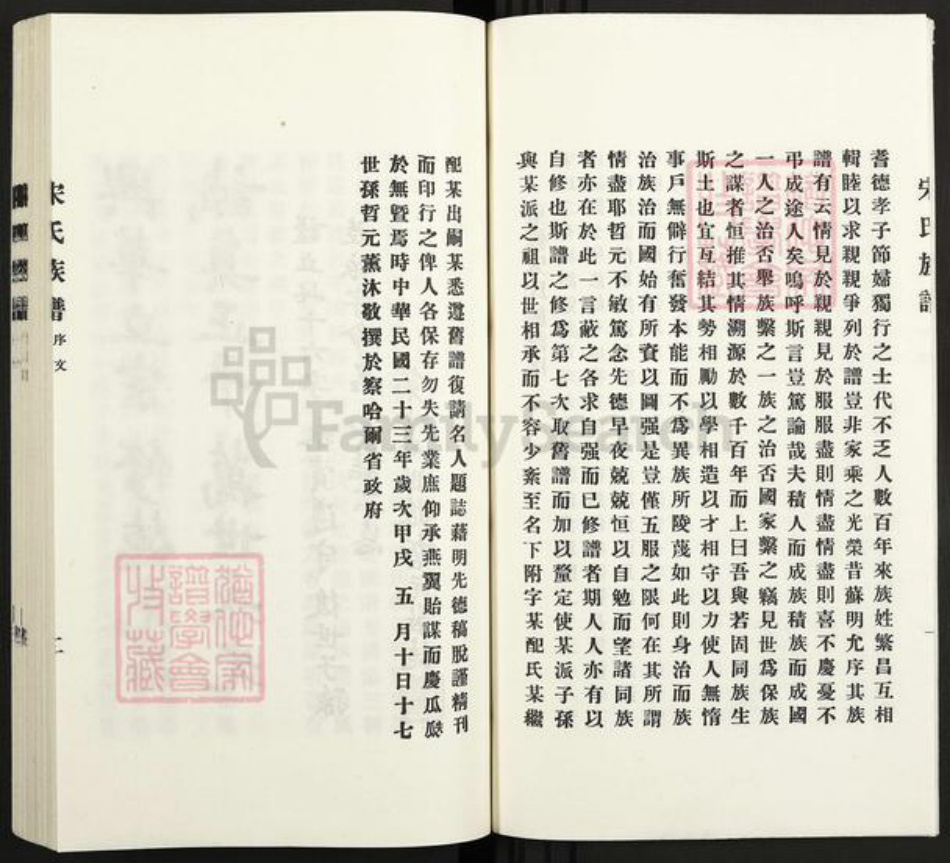 宋氏族譜
耆德孝子節婦獨行之士代不乏人數百年來族姓繁昌互相
輯睦以求親親爭列於譜豈非家乘之光榮昔蘇明允序其族
譜有云情見於親親見於服服盡則情盡情盡則喜不慶憂不
弔成途人矣嗚呼斯言豈篤論哉夫積人而成族積族而成國
一人之治否舉族繫之一族之治否國家繫之竊見世爲保族
之謀者恒推其情溯源於數千百年而上曰吾與若固同族生
斯土也宜互結其勢相勵以學相造以才相守以力使人無惰
事戶無僻行奮發本能而不爲異族所陵蔑如此則身治而族
治族治而國始有所資以圖强是豈僅五服之限何在其所謂
情盡耶哲元不敏篤念先德早夜兢兢恒以自勉而望諸同族
者亦在於此一言蔽之各求自强而已修譜者期人人亦有以
自修也斯譜之修爲第七次取舊譜而加以釐定使某派子孫
與某派之祖以世相承而不容少紊至名下附字某配氏某繼
配某出嗣某悉遵舊譜復請名人題誌藉明先德稿脫謹精刊
而印行之俾人各保存勿失先業庶仰承燕翼貽謀而慶瓜瓞
於無曁焉時中華民國二十三年歲次甲戌五月十日十七
世孫哲元薰沐敬撰於察哈爾省政府
宋氏族譜
序文
二
猶他家
譜學會
收藏
FamilySearch